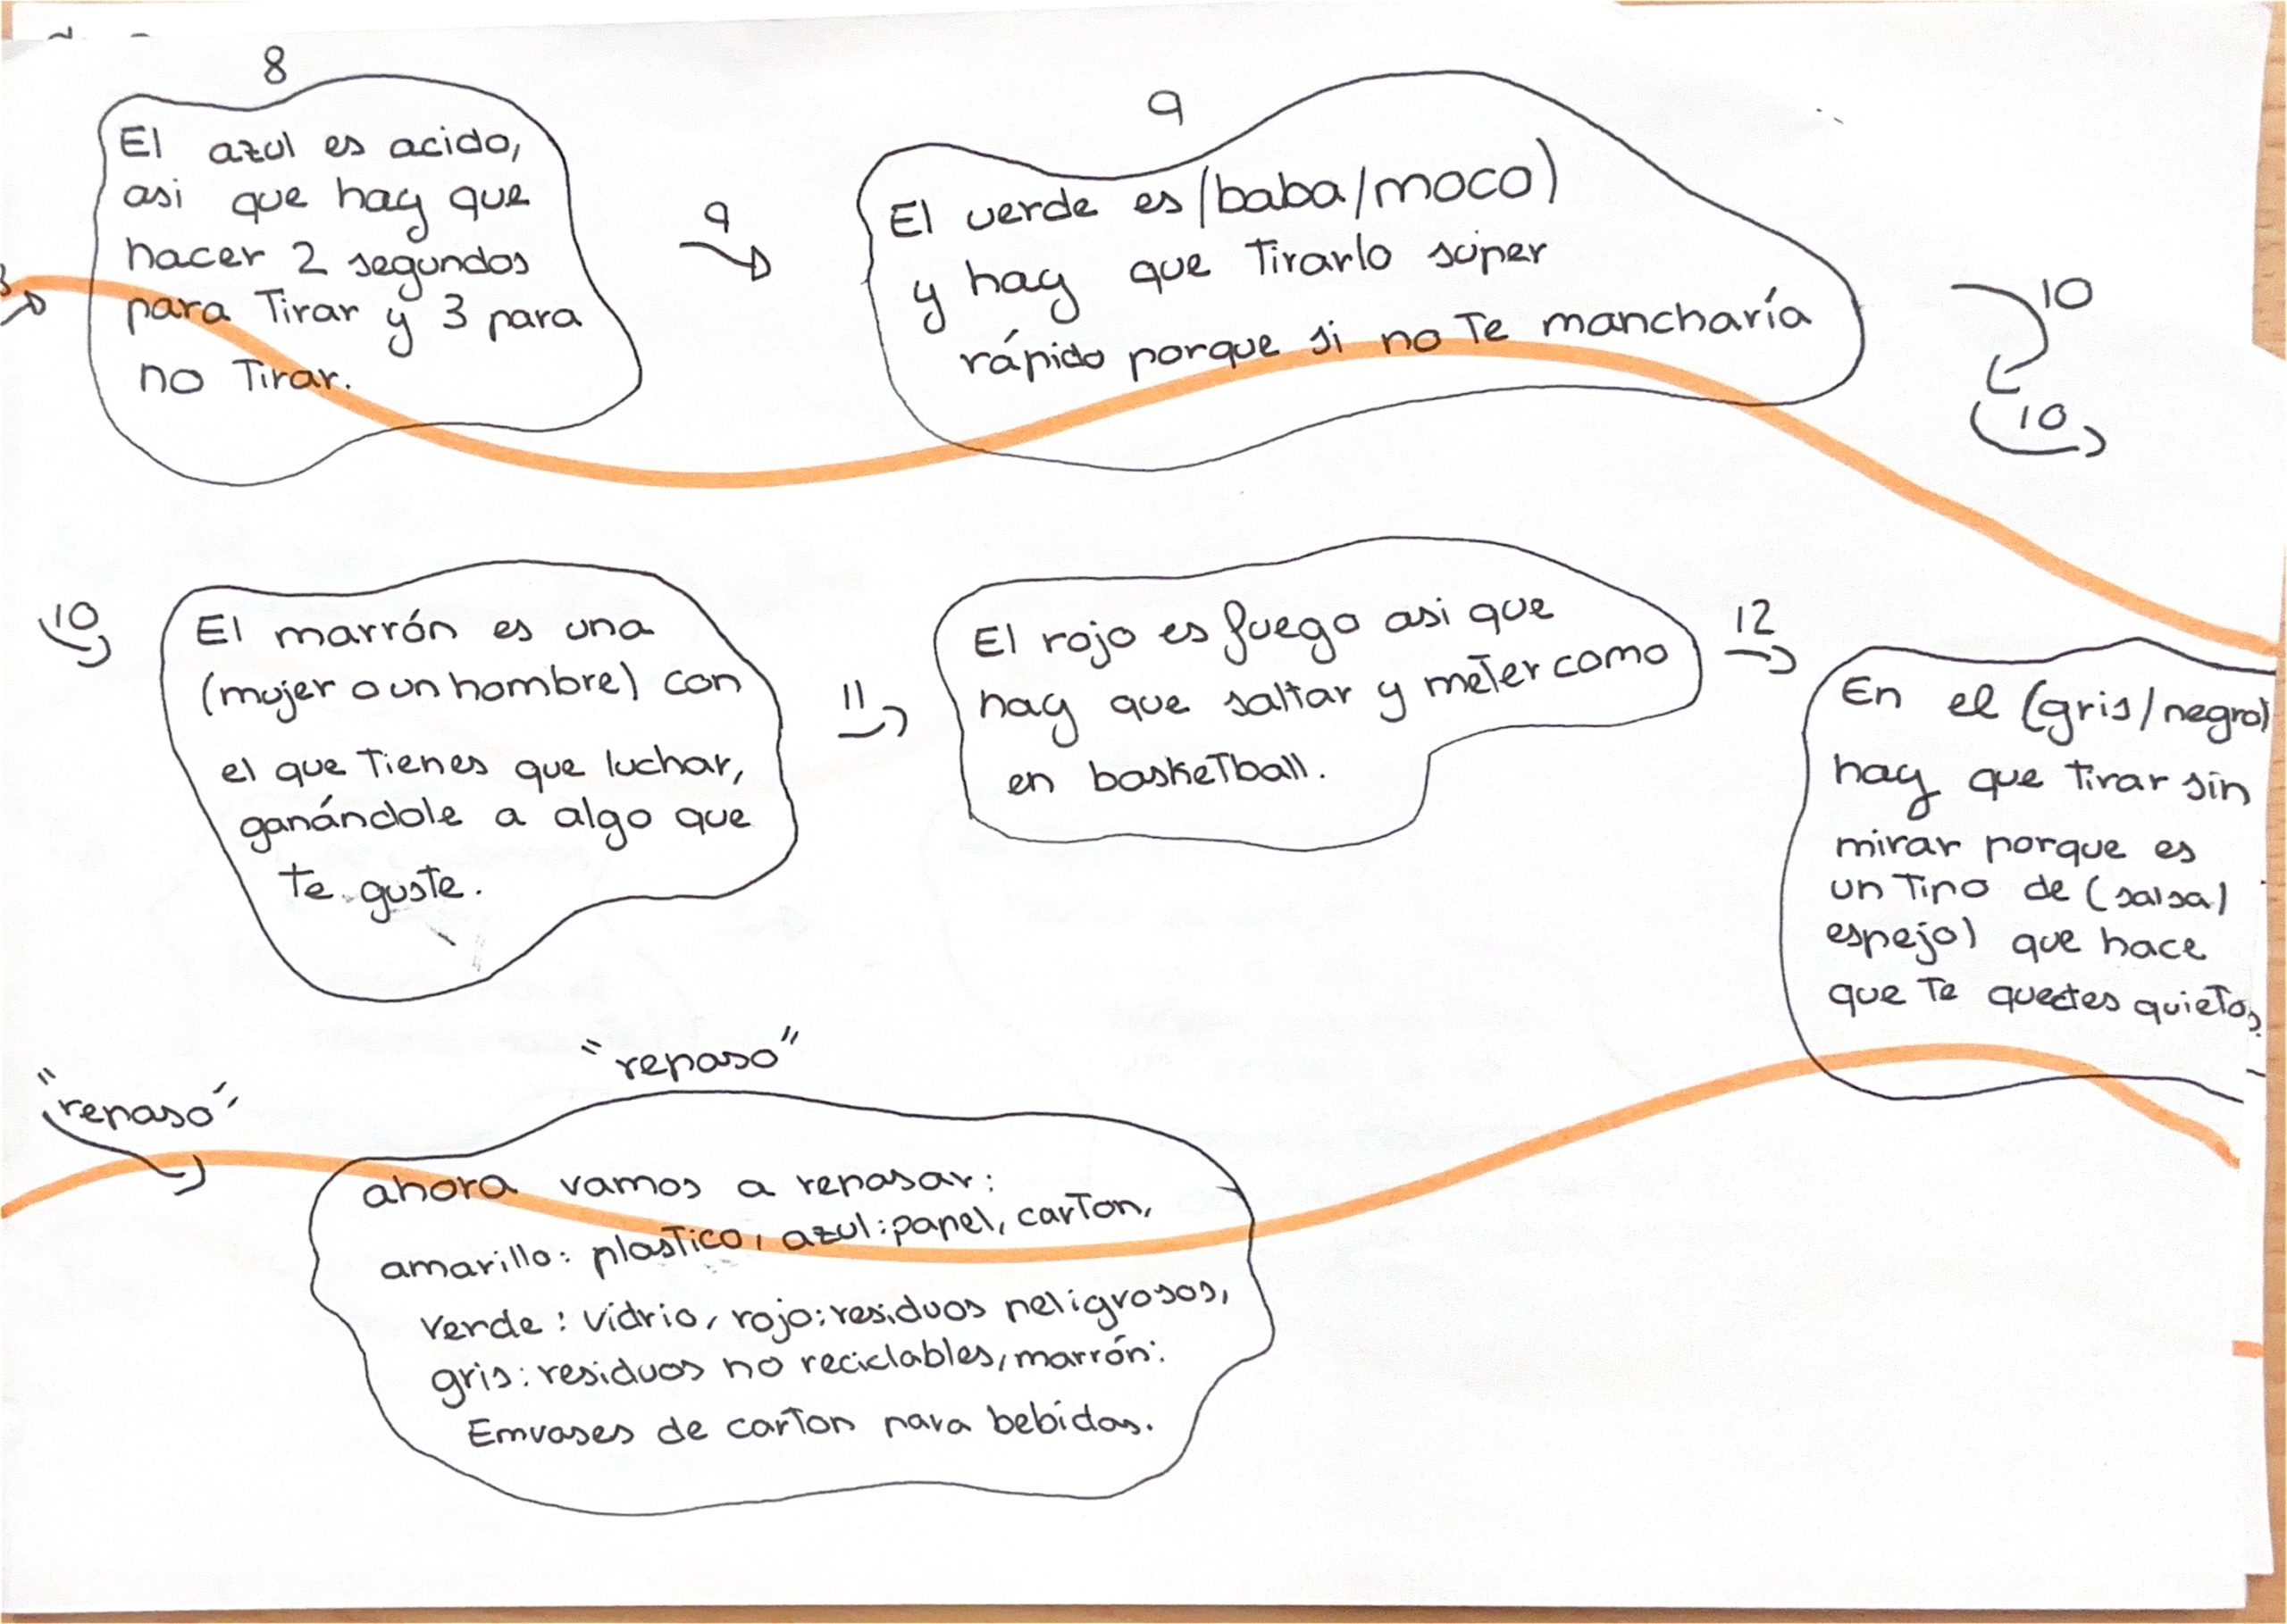 8
El azul es acido,
asi que hay que
hacer 2 segundos
para Tirar y 3 para
no Tirar.
9
9
El verde es (baba/moco)
y hay que Tirarlo súper
rápido porque si no Te mancharía
10
10
10
El marrón es una
(mujer o un hombre) con
el que Tienes que luchar,
ganándole a algo que
te guste.
11
El rojo es fuego asi que
hay que saltar y meter como
en basketball.
12
En el (gris/negro)
hay que tirar sin
mirar porque es
un Tipo de (salsa)
espejo) que hace
que Te quedes quieto,
"repaso"
"repaso"
ahora vamos a repasar:
amarillo: plastico, azul: papel, carton,
verde: vidrio, rojo: residuos peligrosos,
gris: residuos no reciclables, marrón:
Emvases de carton para bebidas.